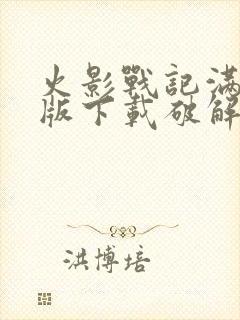 火影戰記滿
版下載破解
洪博培